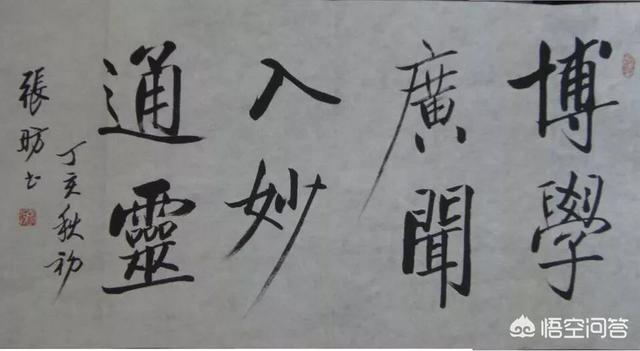 博學
廣聞
入妙
通靈
丁亥秋初
張昉书
悟空问答